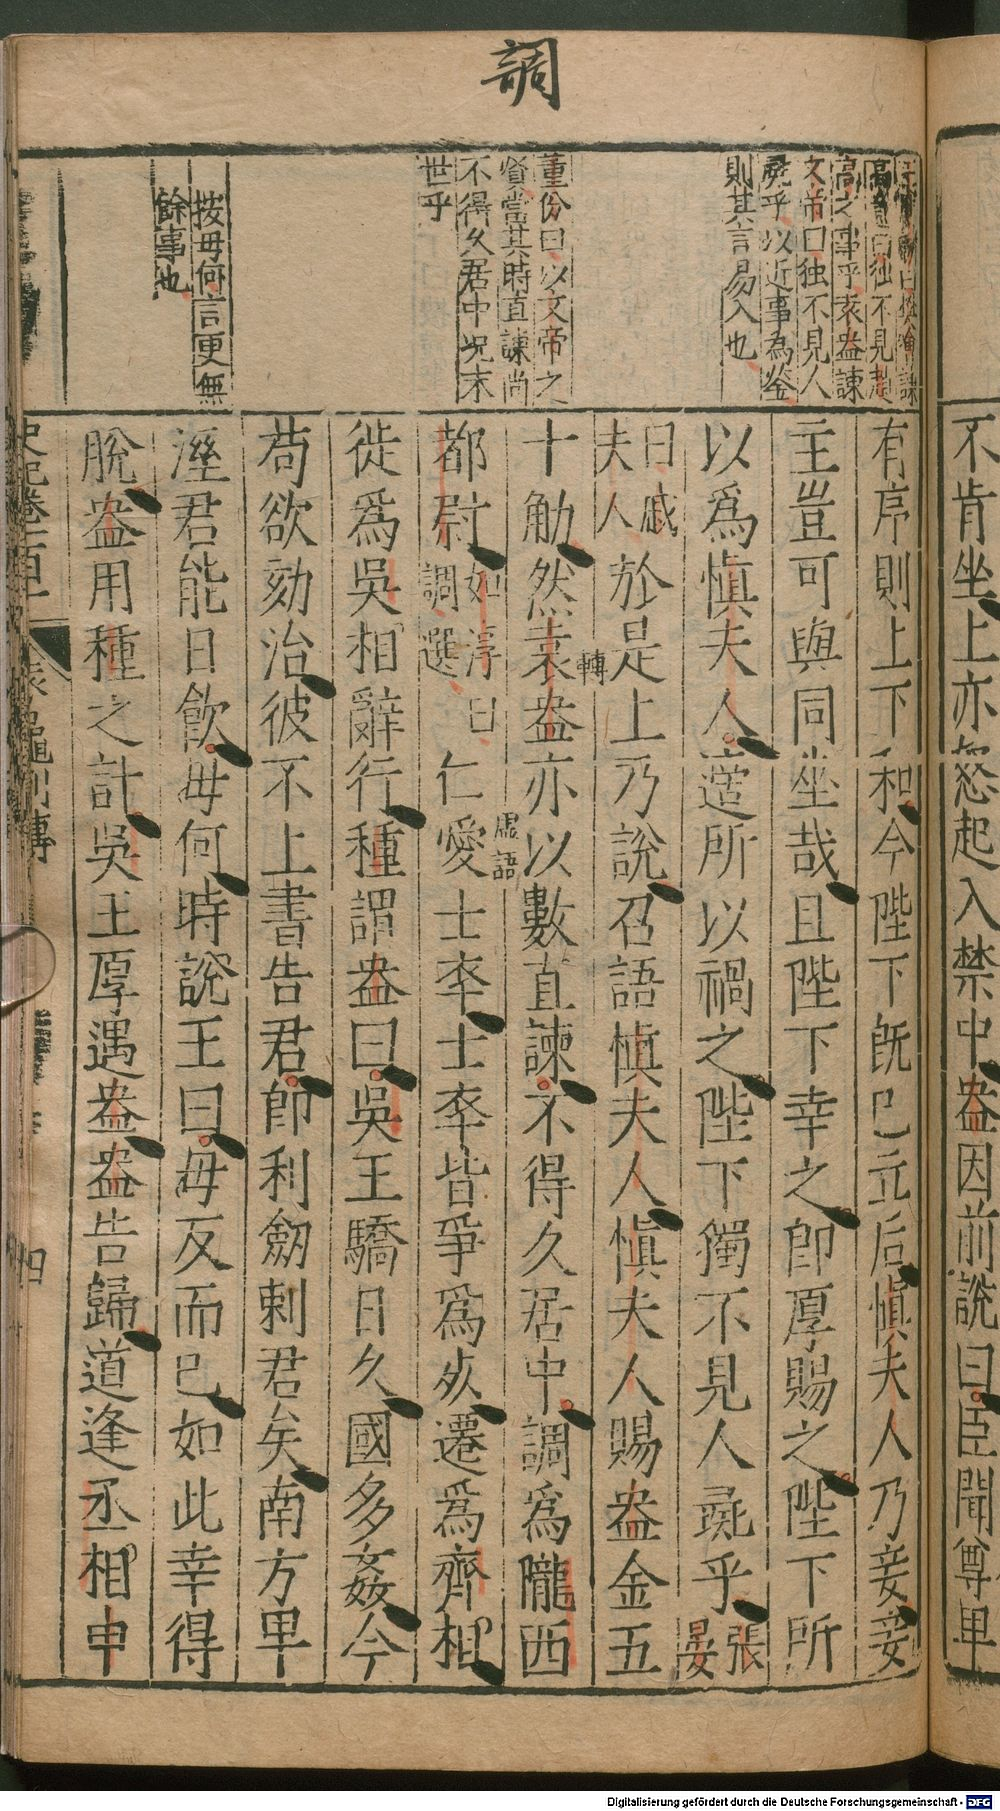 調
高之事乎袁盎諫
文帝曰独不見人
彘乎以近事為鉴
則其言易入也
董份曰以文帝之
賢當其時直諫尚
不得久居中況末
世乎
按毋何言更無
餘事也
不肯坐上亦怒起入禁中盎因前說曰臣聞尊卑
有序則上下和今陛下旣已立后慎夫人乃妾妾
主豈可與同坐哉且陛下幸之卽厚賜之陛下所
以爲慎夫人適所以禍之陛下獨不見人彘乎張晏
曰戚夫人於是上乃說召語慎夫人慎夫人賜盎金五
十觔然袁盎亦以數直諫不得久居中調爲隴西
轉
虚語
都尉如淳曰調選仁愛士卒士卒皆爭爲死遷爲齊相
徙爲吳相辭行種謂盎曰吳王驕日久國多姦今
苟欲劾治彼不上書告君卽利劒刺君矣南方卑
溼君能日飲毋何時說王曰毋反而已如此幸得
脫盎用種之計吳王厚遇盎盎告歸道逢丞相申
史記卷百一
袁鼂列傳
四
Digitalisierung gefördert durch die Deutsche Forschungsgemeinschaft - DFG